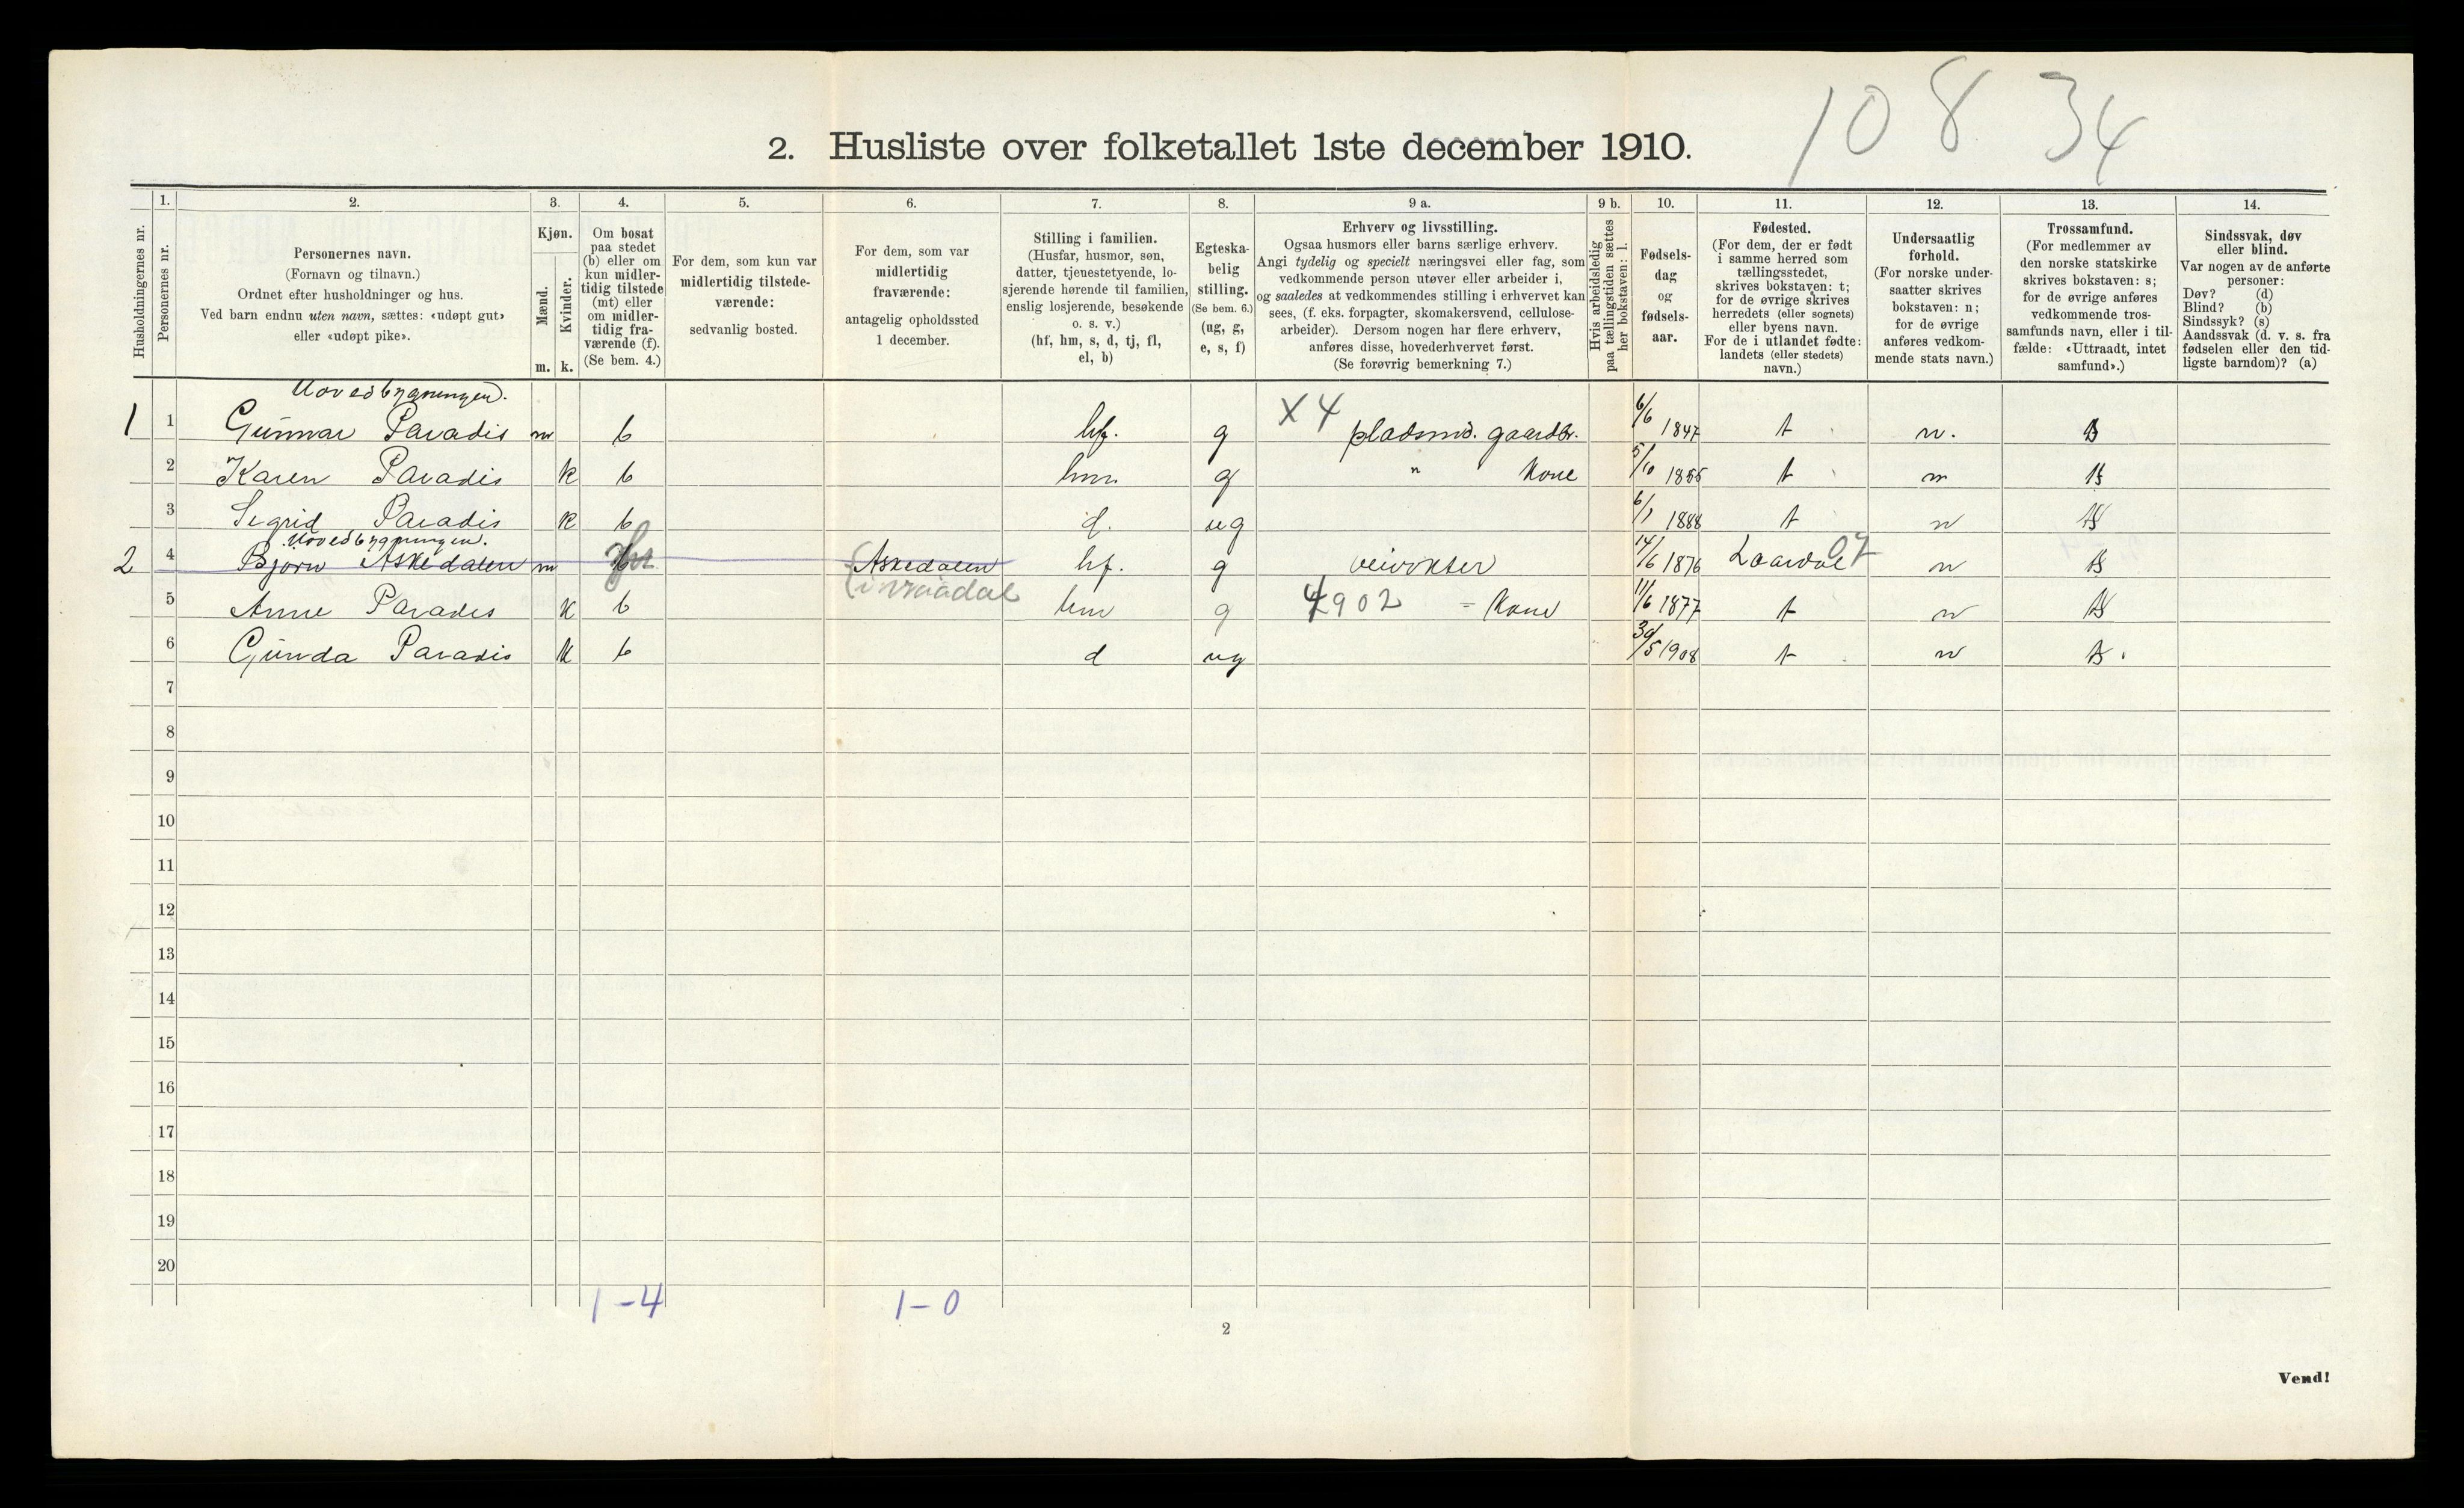 10834
2. Husliste over folketallet 1ste december 1910.
Husholdningernes nr.
1.
Personernes nr.
2.
Personernes navn.
(Fornavn og tilnavn.)
Ordnet efter husholdninger og hus.
Ved barn endnu uten navn, sættes: «udøpt gut»
eller «udøpt pike».
3.
Kjøn.
Mænd.
Kvinder.
m. k.
4.
Om bosat
paa stedet
(b) eller om
kun midler-
tidig tilstede
(mt) eller
om midler-
tidig fra-
værende (f).
(Se bem. 4.)
5.
For dem, som kun var
midlertidig tilstede-
værende:
sedvanlig bosted.
6.
For dem, som var
midlertidig
fraværende:
antagelig opholdssted
1 december.
7.
Stilling i familien.
(Husfar, husmor, søn,
datter, tjenestetyende, lo-
sjerende hørende til familien,
enslig losjerende, besøkende
o. s. v.)
(hf, hm, s, d, tj, fl,
el, b)
8.
Egteska-
belig
stilling.
(Se bem. 6.)
(ug, g,
e, s, f)
9 a.
Erhverv og livsstilling.
Ogsaa husmors eller barns særlige erhverv.
Angi tydelig og specielt næringsvei eller fag, som
vedkommende person utøver eller arbeider i,
og saaledes at vedkommendes stilling i erhvervet kan
sees, (f. eks. forpagter, skomakersvend, cellulose-
arbeider). Dersom nogen har flere erhverv,
anføres disse, hovederhvervet først.
(Se forøvrig bemerkning 7.)
9 b.
Hvis arbeidsledig
paa tællingstiden sættes
her bokstaven: l.
10.
Fødsels-
dag
og
fødsels-
aar.
11.
Fødested.
(For dem, der er født
i samme herred som
tællingsstedet,
skrives bokstaven: t;
for de øvrige skrives
herredets (eller sognets)
eller byens navn.
For de i utlandet fødte:
landets (eller stedets)
navn.)
12.
Undersaatlig
forhold.
(For norske under-
saatter skrives
bokstaven: n;
for de øvrige
anføres vedkom-
mende stats navn.)
13.
Trossamfund.
(For medlemmer av
den norske statskirke
skrives bokstaven: s;
for de øvrige anføres
vedkommende tros-
samfunds navn, eller i til-
fælde: «Uttraadt, intet
samfund».)
14.
Sindssvak, døv
eller blind.
Var nogen av de anførte
personer:
Døv? (d)
Blind? (b)
Sindssyk? (s)
Aandssvak (d. v. s. fra
fødselen eller den tid-
ligste barndom)? (a)
Hovedbygningen.
1 1 Gunnar Paradis m b hf. g X 4 pladsmd. gaardbr. 6/6 1847 t n. s
2 Karen Paradis k b hm g " Kone 5/10 1855 t n s
3 Sigrid Paradis k b d. ug 6/1 1888 t n s
Hovedbygningen.
2 4 Bjørn Askedalen m Askedalen hf. g veivokter 14/6 1876 Laardal 07 n s
5 Anne Paradis k b hm g 4902 = Kone 11/6 1877 t n s
6 Gunda Paradis k b d ug 30/5 1908 t n s.
7
8
9
10
11
12
13
14
15
16
17
18
19
20
1-4 1-0
2
Vend!